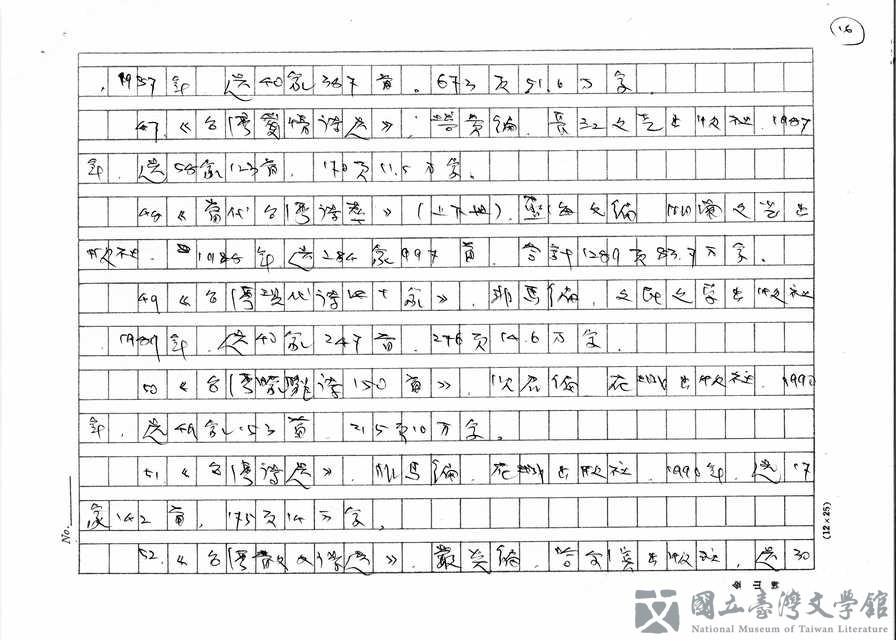 16
，1987年 选40家387首。673页51.6万字。
47.《台湾爱情诗选》，莺贡编，长江文艺出版社，1987
年，选58家123首，170页11.5万字。
48《当代台湾诗萃》（上下册），蓝海文编 湖南文艺出
版社，1988年，选284家997首，合计1289页83.7万字。
49《台湾现代诗四十家》，非马编，文民文学出版社
，1989年，选40家247首，276页14.6万字。
50《台湾朦胧诗150首》，编，花城出版社，1990
年，选49家153首 215页10万字。
51.《台湾诗选》，非马编，花城出版社，1990年，选17
家142首，175页14万字。
52.《台湾散文诗选》，编，出版社，选30
No.
(12×25)
國立臺灣文學館
National Museum of Taiwan Literature